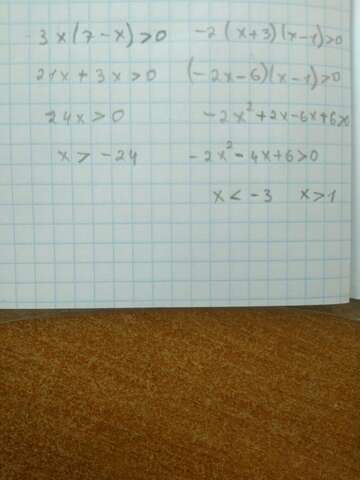 3x(7-x)>0
21x+3x>0
24x>0
x>-24
-2(x+3)(x-1)>0
(-2x-6)(x-1)>0
-2x²+2x-6x+6>
-2x²-4x+6>0
x<-3 x>1